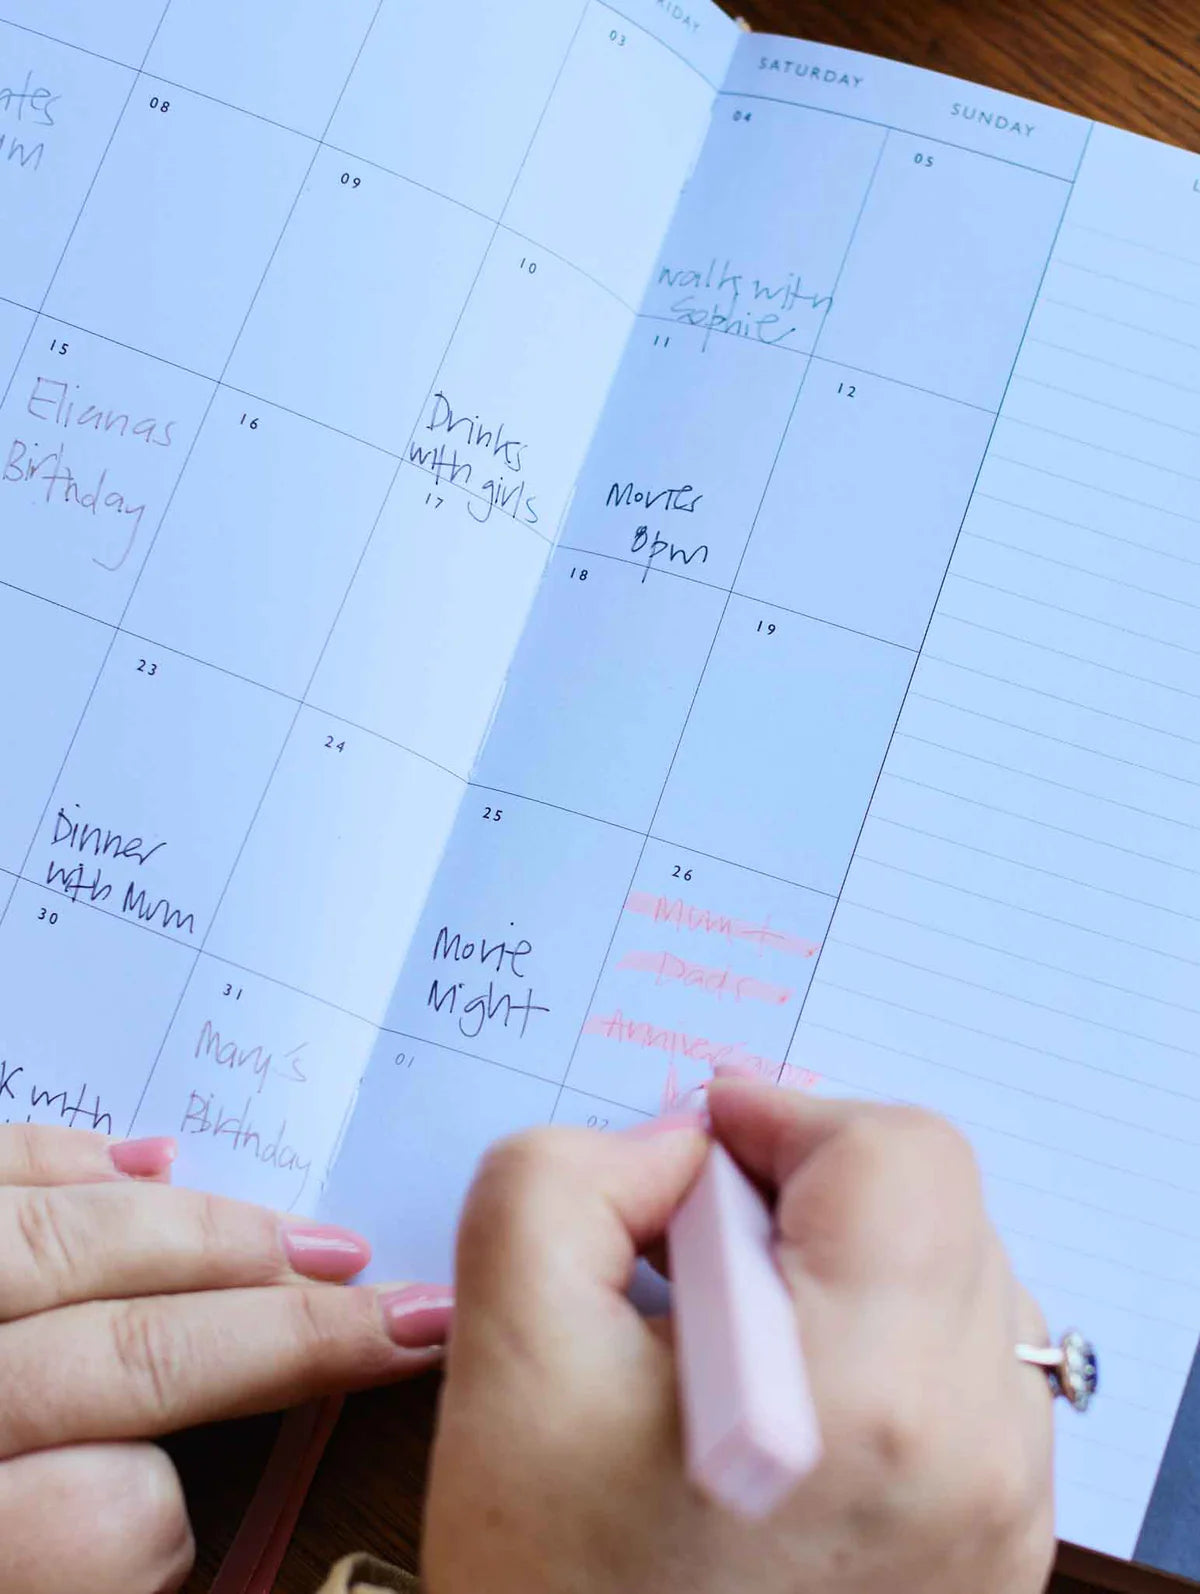 SATURDAY
SUNDAY
03
04
05
08
09
10
Drinks
with girls
11
walk with
Sophie
12
15
Elianas
Birthday
16
17
Movies
8pm
18
19
23
Dinner
with Mum
24
25
Movie
Night
26
Mum +
Dads
Anniversary
30
with
31
Mary's
Birthday
01
02